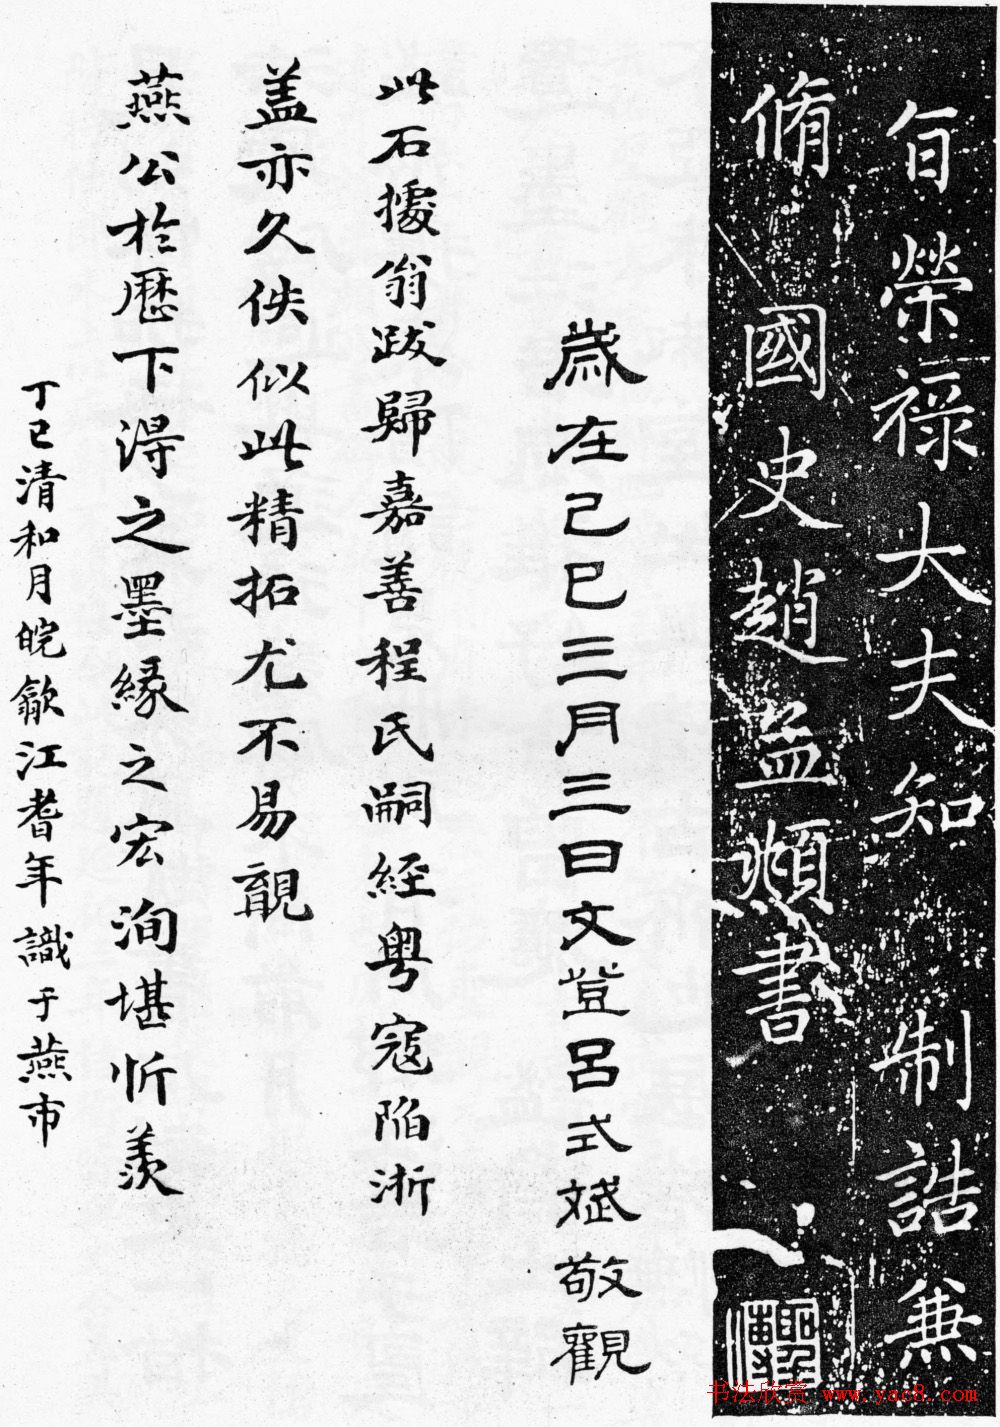 旨榮祿大夫知 制誥兼
脩國史趙孟頫書
歲在己巳三月三日文登呂式斌敬觀
此石據翁跋歸嘉善程氏嗣經粵寇陷浙
盖亦久佚似此精拓尤不易覯
燕公於歷下得之墨緣之宏洵堪忻羨
丁巳清和月皖歙江耆年識于燕市
书法欣赏 www.yac8.com